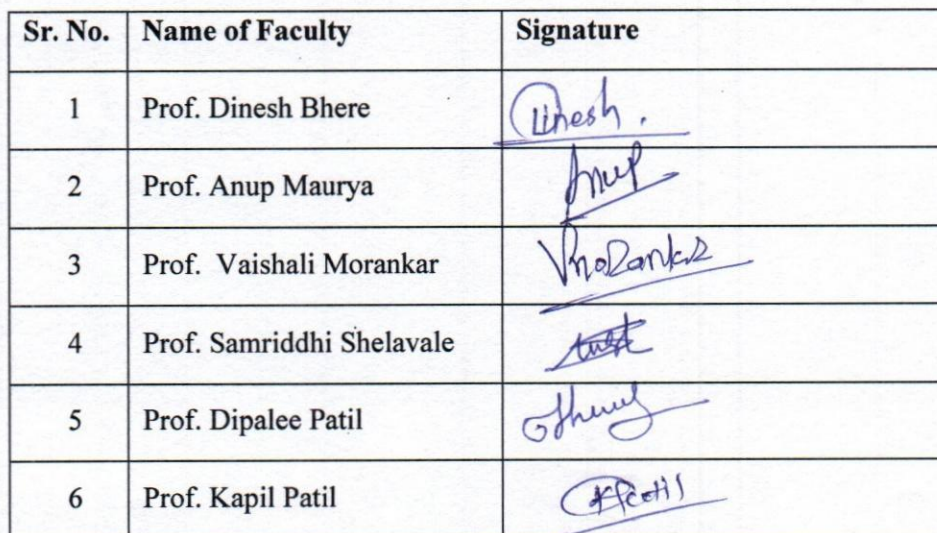 Sr. No. Name of Faculty Signature
1 Prof. Dinesh Bhere Dinesh.
2 Prof. Anup Maurya Anup
3 Prof. Vaishali Morankar VMorankar
4 Prof. Samriddhi Shelavale
5 Prof. Dipalee Patil
6 Prof. Kapil Patil KPatil